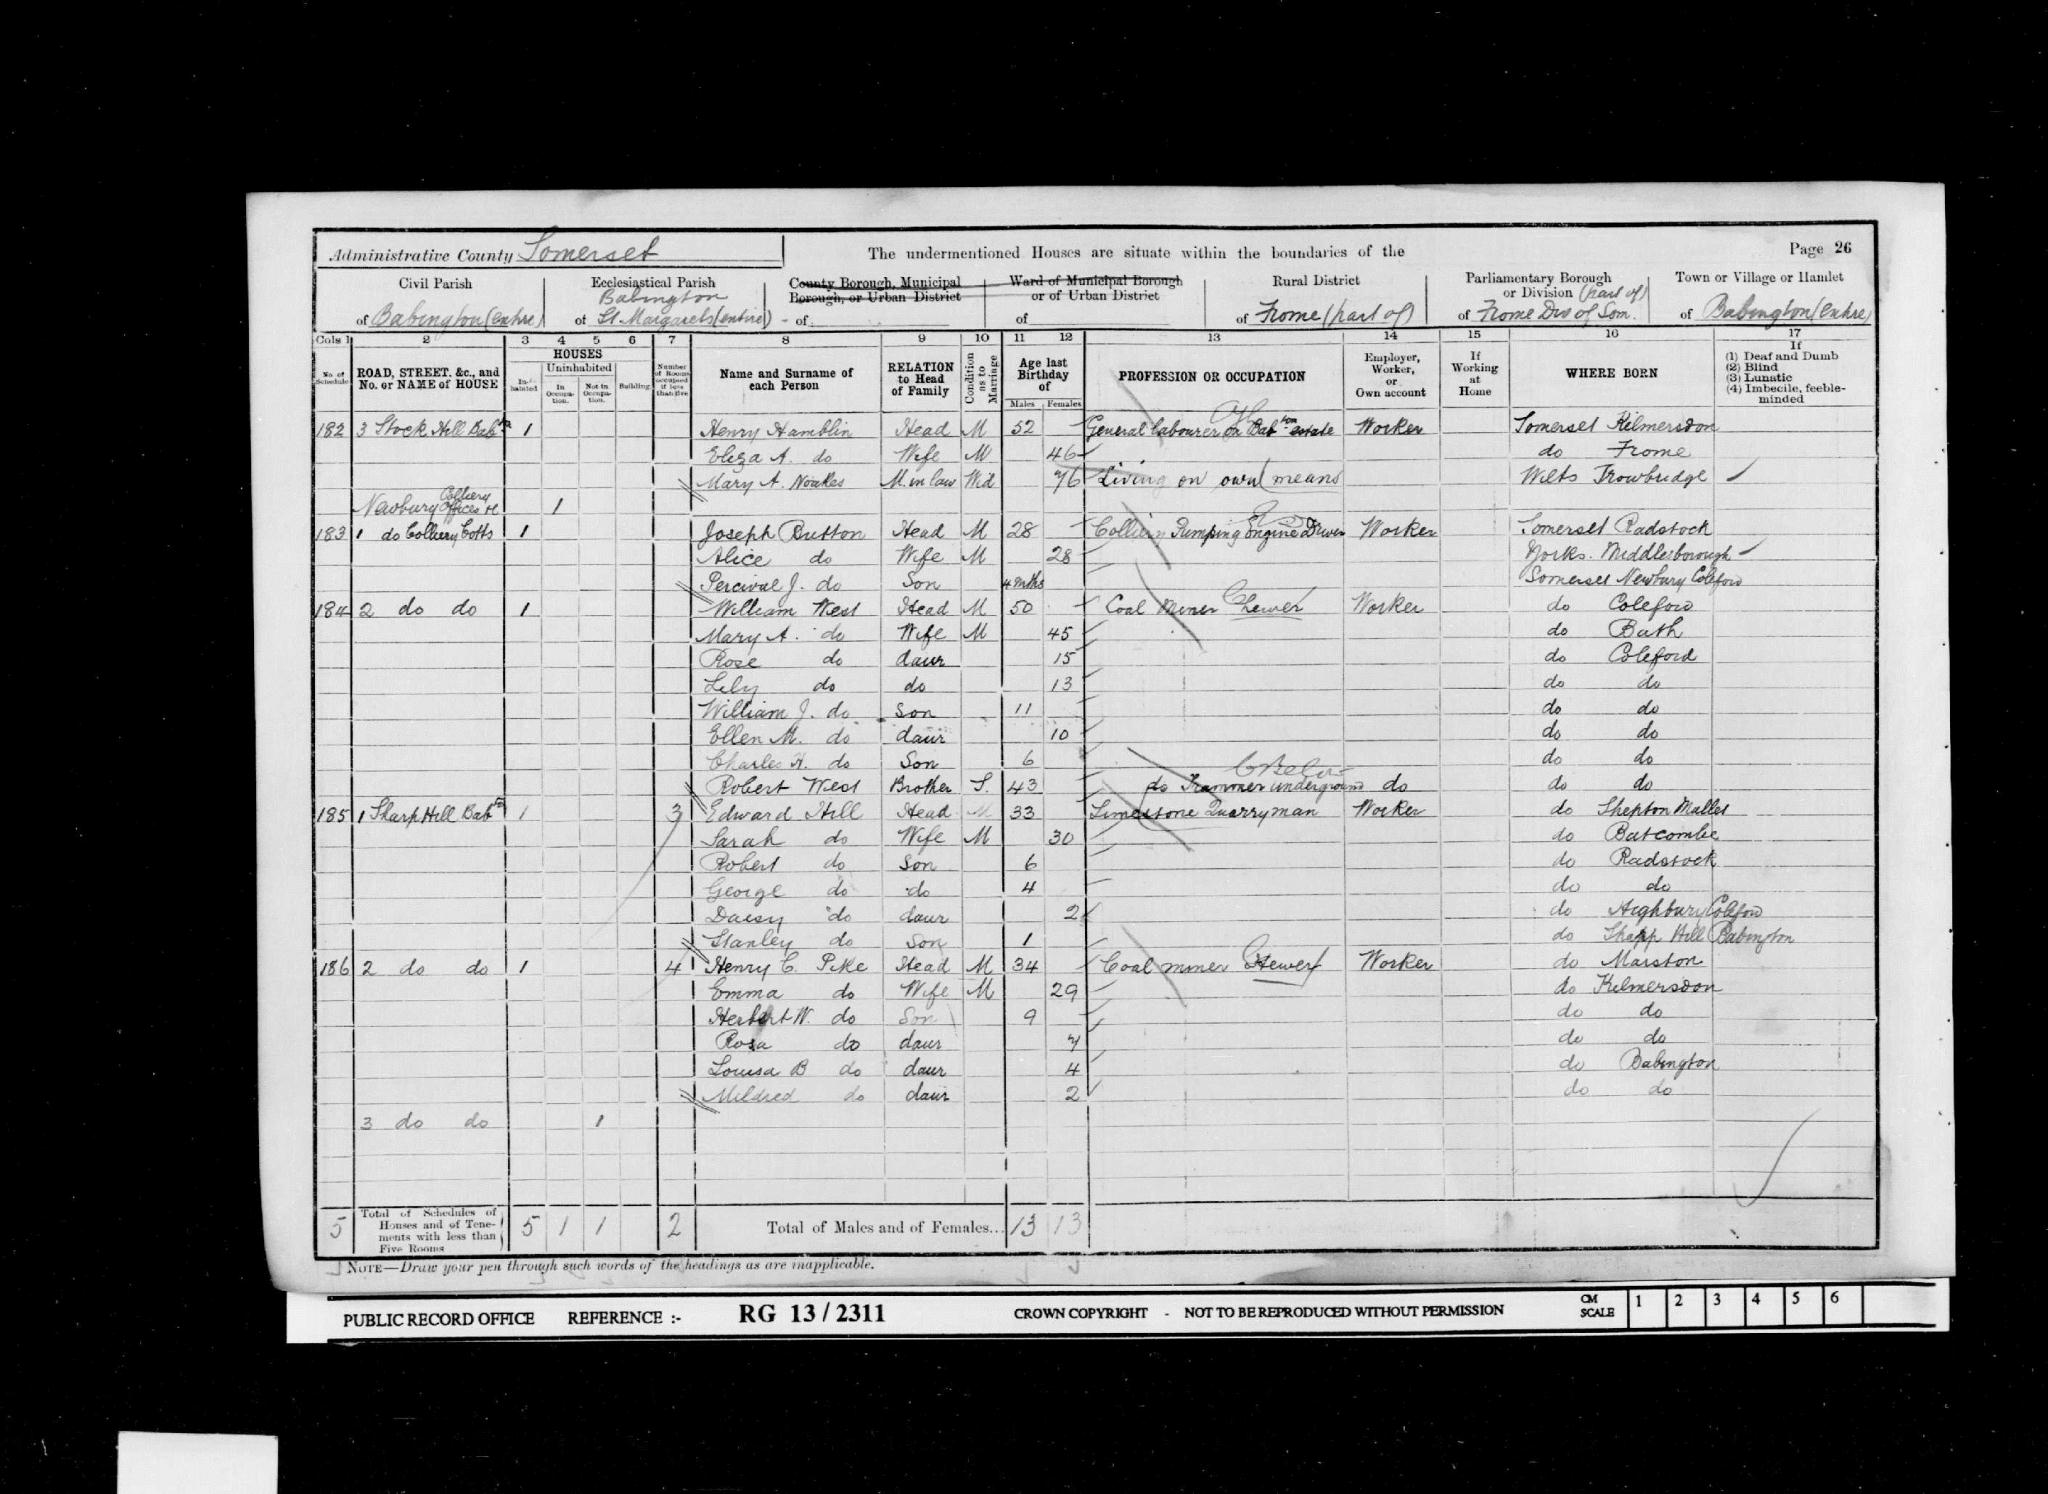 Administrative County Somerset
The undermentioned Houses are situate within the boundaries of the
Page 26
Civil Parish
of Babington (entire)
Ecclesiastical Parish
Babington
of St. Margarets (entire)
County Borough, Municipal
Borough, or Urban District
of
Ward of Municipal Borough
or of Urban District
of
Rural District
of Frome (part of)
Parliamentary Borough
or Division (part of)
of Frome Div of Som.
Town or Village or Hamlet
of Babington (entire)
Cols 1 2 3 4 5 6 7 8 9 10 11 12 13 14 15 16 17
No. of Schedule
ROAD, STREET, &c., and No. or NAME of HOUSE
HOUSES
Inhabited
Uninhabited
In Occupation.
Not in Occupation.
Building
Number of Rooms occupied if less than five
Name and Surname of each Person
RELATION to Head of Family
Condition as to Marriage
Age last Birthday of
Males Females
PROFESSION OR OCCUPATION
Employer, Worker, or Own account
If Working at Home
WHERE BORN
If
(1) Deaf and Dumb
(2) Blind
(3) Lunatic
(4) Imbecile, feeble-minded
182 3 Stock Hill Babtn 1 Henry Hamblin Head M 52 General labourer on Babton estate Worker Somerset Kilmersdon
Eliza A. do Wife M 46 do Frome
Mary A. Noakes M. in law Wid 76 Living on own means Wilts Trowbridge
Newbury Colliery Offices &c 1
183 1 do Colliery Cotts 1 Joseph Button Head M 28 Colliery Pumping Engine Driver Worker Somerset Radstock
Alice do Wife M 28 Yorks. Middlesborough
Percival J. do Son 4 mths Somerset Newbury Coleford
184 2 do do 1 William West Head M 50 Coal Miner Hewer Worker do Coleford
Mary A. do Wife M 45 do Bath
Rose do daur 15 do Coleford
Lily do do 13 do do
William J. do Son 11 do do
Ellen M. do daur 10 do do
Charles H. do Son 6 do do
Robert West Brother S. 43 do Trammer underground do do do
185 1 Sharp Hill Babtn 1 3 Edward Hill Head M 33 Limestone Quarryman Worker do Shepton Mallet
Sarah do Wife M 30 do Batcombe
Robert do Son 6 do Radstock
George do do 4 do do
Daisy do daur 2 do Highbury Coleford
Stanley do Son 1 do Sharp Hill Babington
186 2 do do 1 4 Henry C. Pike Head M 34 Coal miner Hewer Worker do Marston
Emma do Wife M 29 do Kilmersdon
Herbert W. do Son 9 do do
Rosa do daur 7 do do
Louisa B do daur 4 do Babington
Mildred do daur 2 do do
3 do do 1
5 Total of Schedules of Houses and of Tenements with less than Five Rooms 5 1 1 2 Total of Males and of Females... 13 13
NOTE—Draw your pen through such words of the headings as are inapplicable.
PUBLIC RECORD OFFICE REFERENCE :- RG 13 / 2311 CROWN COPYRIGHT - NOT TO BE REPRODUCED WITHOUT PERMISSION CM SCALE 1 2 3 4 5 6